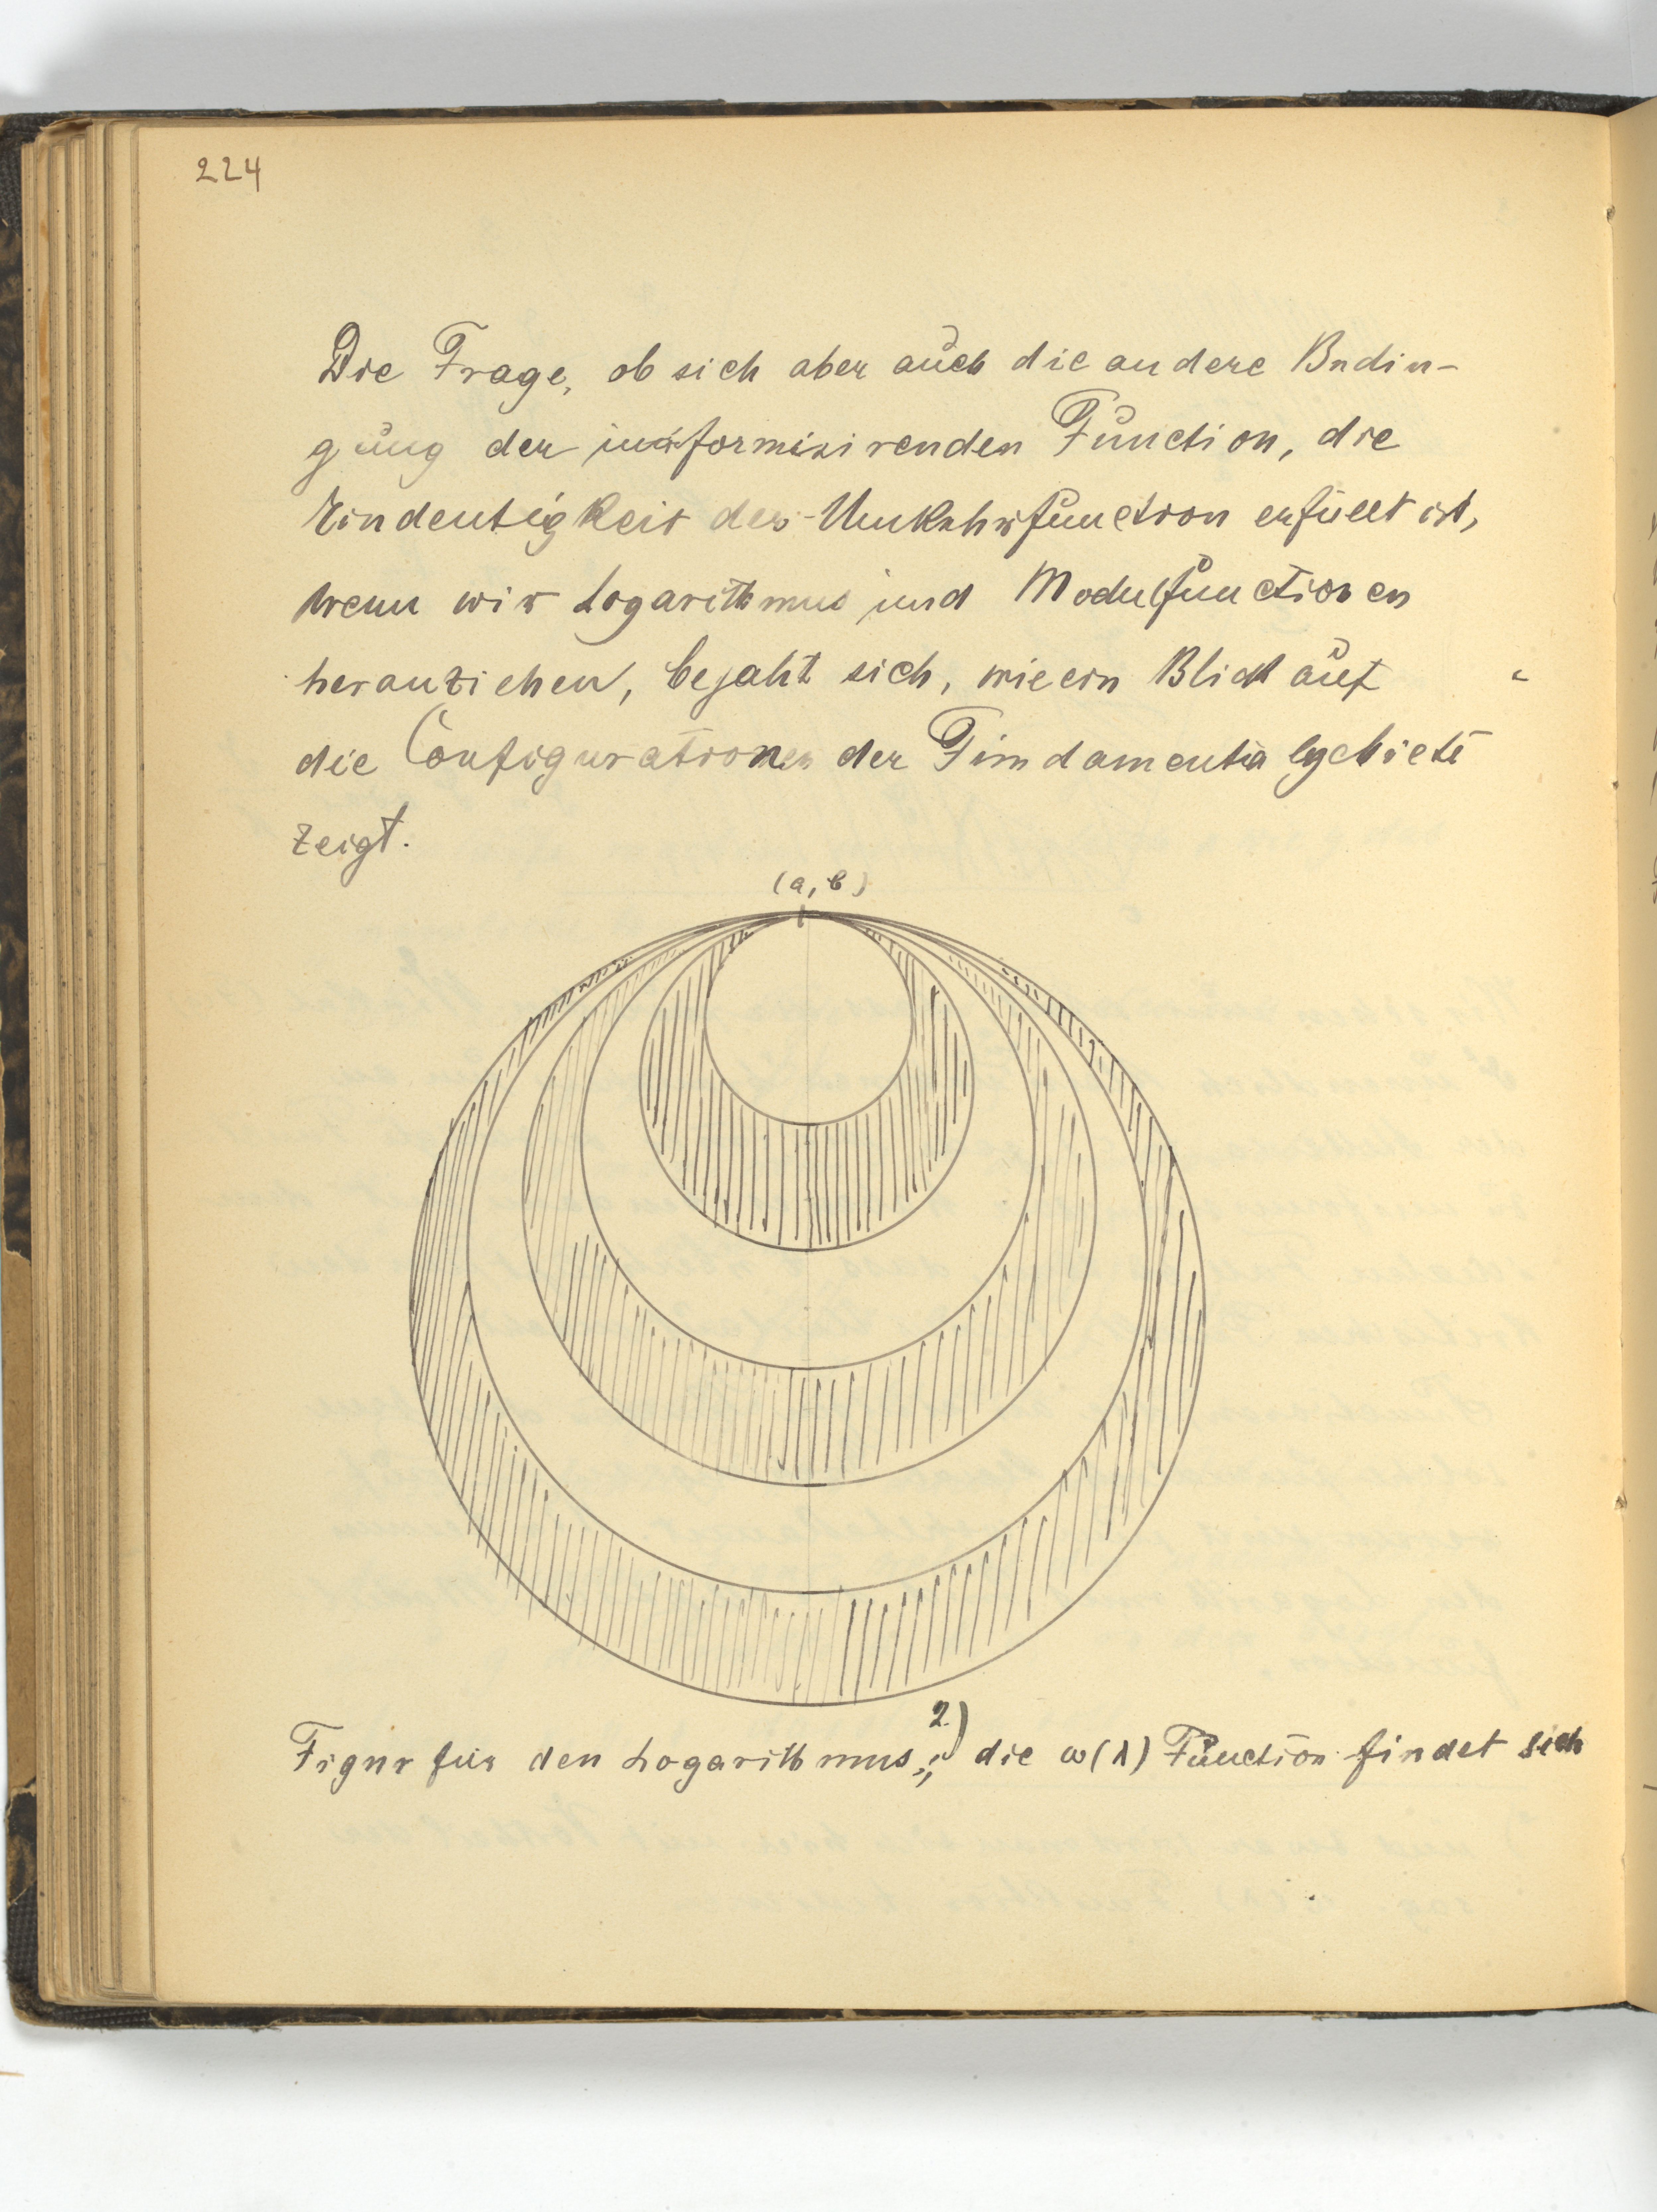 224
Die Frage, ob sich aber auch die andere Bedin-
gung der uniformisirenden Function, die
Eindeutigkeit der Umkehrfunction erfüllt ist,
wenn wir Logarithmus und Modulfunctionen
heranziehen, bejaht sich, wie ein Blick auf
die Configurationen der Fundamentalgebiete
zeigt.
(a, b)
Figur für den Logarithmus; 2) die ω(λ) Function findet sich